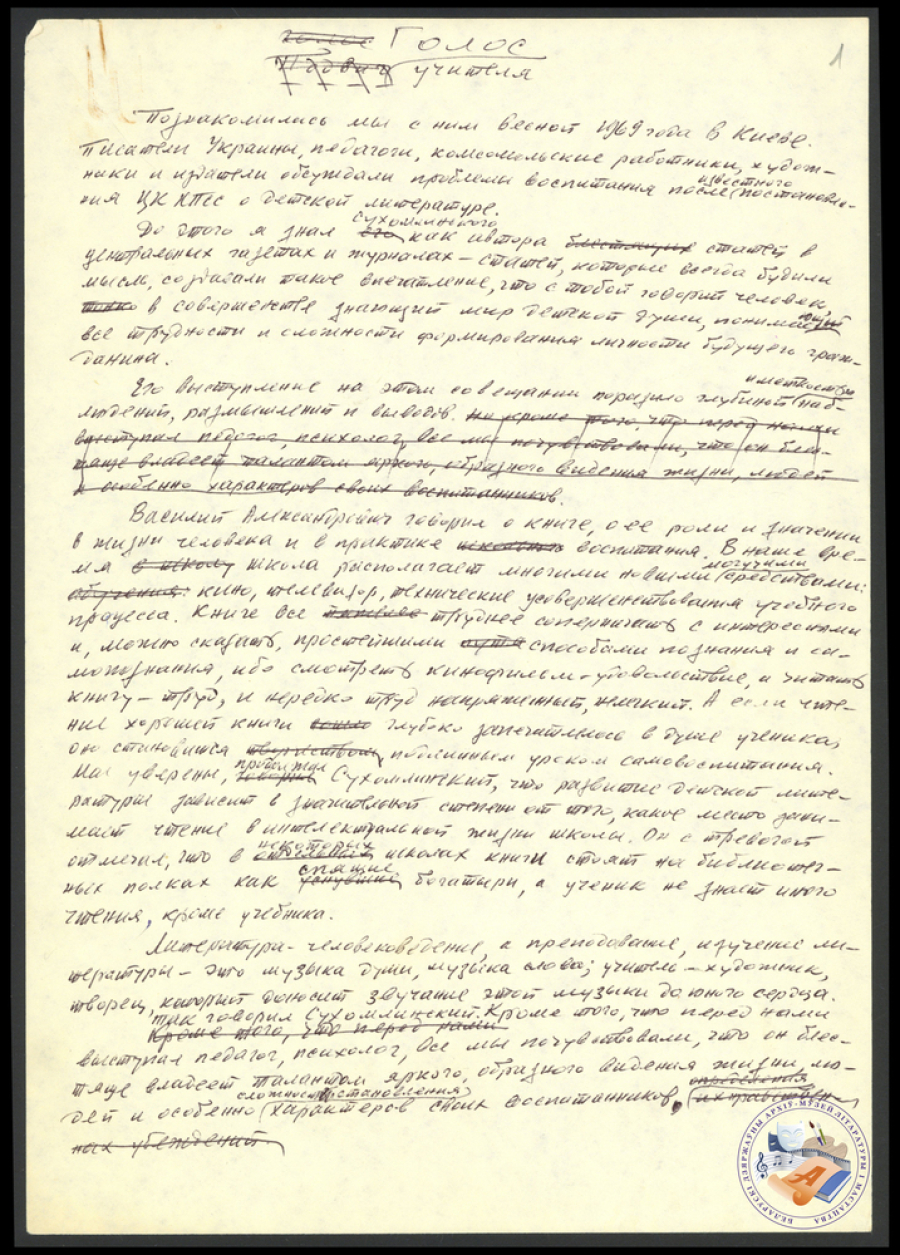 Голос Голос
учителя
1
Познакомились мы с ним весной 1969 года в Киеве.
Писатели Украины, педагоги, комсомольские работники, худож-
ники и издатели обсуждали проблемы воспитания после известного постановле-
ния ЦК КПСС о детской литературе.
До этого я знал его Сухомлинского как автора блестящих статей в
центральных газетах и журналах – статей, которые всегда будили
мысль, создавали такое впечатление, что с тобой говорит человек,
тонко в совершенстве знающий мир детской души, понимающий
все трудности и сложности формирования личности будущего граж-
данина.
Его выступление на этом совещании поразило глубиной наб-
людений, размышлений и выводов. Но кроме того, что перед нами
выступал педагог, психолог, все мы почувствовали, что он блес-
тяще владеет талантом яркого, образного видения жизни, людей
и особенно характеров своих воспитанников.
Василий Александрович говорил о книге, о ее роли и значении
в жизни человека и в практике воспитания. В наше вре-
мя в школу школа располагает многими новыми могучими средствами:
обучения: кино, телевизор, технические усовершенствования учебного
процесса. Книге все тяжелее труднее соперничать с интересными
и, можно сказать, простейшими способами познания и са-
мопознания, ибо смотреть кинофильм – удовольствие, а читать
книгу – труд, и нередко труд напряженный, нелегкий. А если чте-
ние хорошей книги глубоко запечатлелось в душе ученика,
оно становится творчеством, подлинным уроком самовоспитания.
Мы уверены, говорил продолжал Сухомлинский, что развитие детской лите-
ратуры зависит в значительной степени от того, какое место зани-
мает чтение в интелектуальной жизни школы. Он с тревогой
отмечал, что в отдельных некоторых школах книги стоят на библиотеч-
ных полках как уснувшие спящие богатыри, а ученик не знает иного
чтения, кроме учебника.
Литература – человековедение, а преподавание, изучение ли-
тературы – это музыка души, музыка слова; учитель – художник,
творец, который доносит звучание этой музыки до юного сердца.
Так говорил Сухомлинский. Кроме того, что перед нами
Кроме того, что перед нами
выступал педагог, психолог, все мы почувствовали, что он блес-
тяще владеет талантом яркого, образного видения жизни лю-
дей и особенно сложности становления характеров своих воспитанников, определения их нравствен-
ных убеждений.
БЕЛАРУСКІ ДЗЯРЖАЎНЫ АРХІЎ-МУЗЕЙ ЛІТАРАТУРЫ І МАСТАЦТВА
А